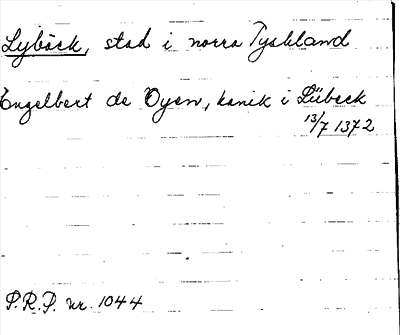 Lybäck, stad i norra Tyskland
Engelbert de Oyen, kanik i Lübeck
13/7 1372
P.R.P. nr. 1044